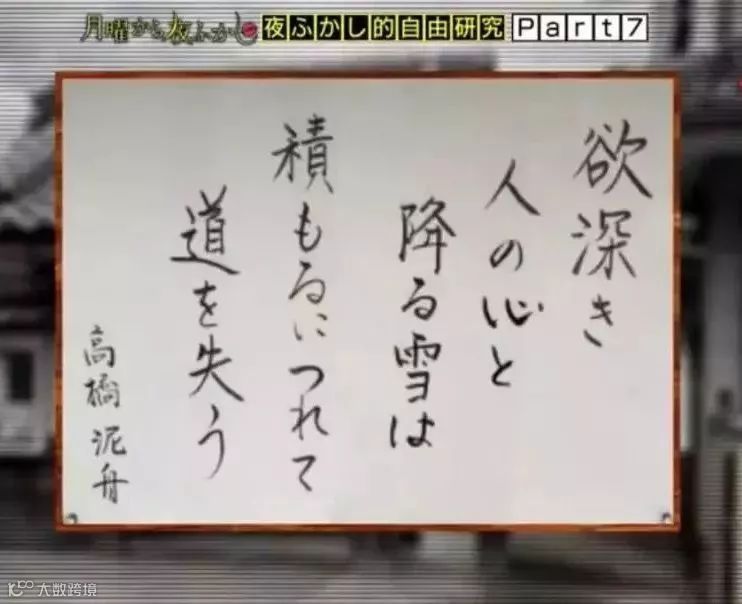 月曜から夜ふかし
夜ふかし的自由研究 Part7
欲深き
人の心と
降る雪は
積もるにつれて
道を失う
高橋泥舟
大数跨境